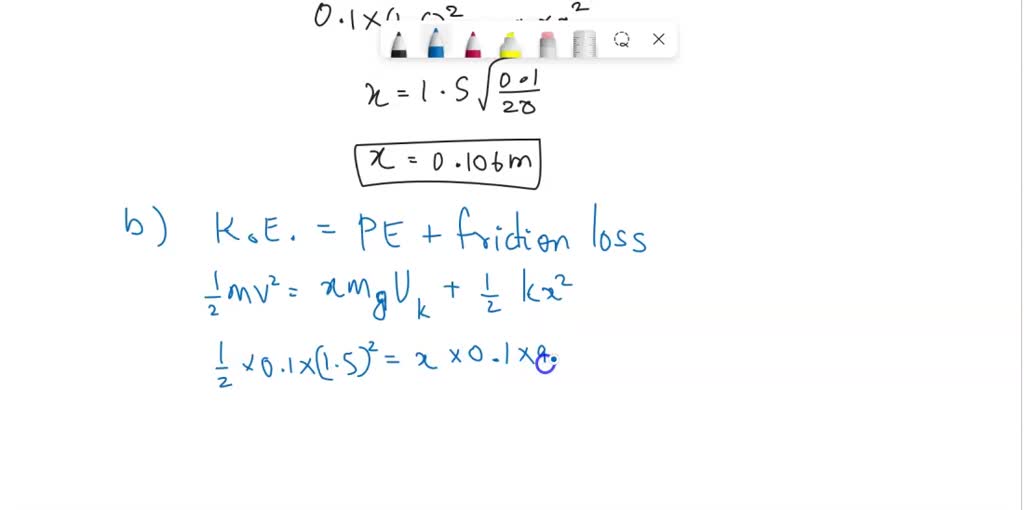 0.1×(1.5)² x²
x = 1.5 √(0.1/20)
x = 0.106m
b) K.E. = PE + friction loss
1/2 mv² = xmgUₖ + 1/2 kx²
1/2 × 0.1×(1.5)² = x × 0.1×9.